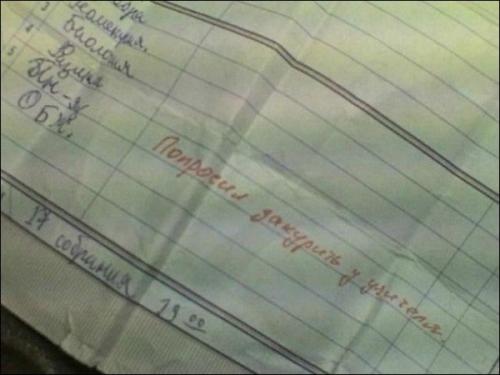 3 Геометрия.
4 Биология
5 Физика
Ин-я
ОБЖ.
Попросил закурить у учителя.
17 собрания 19 00